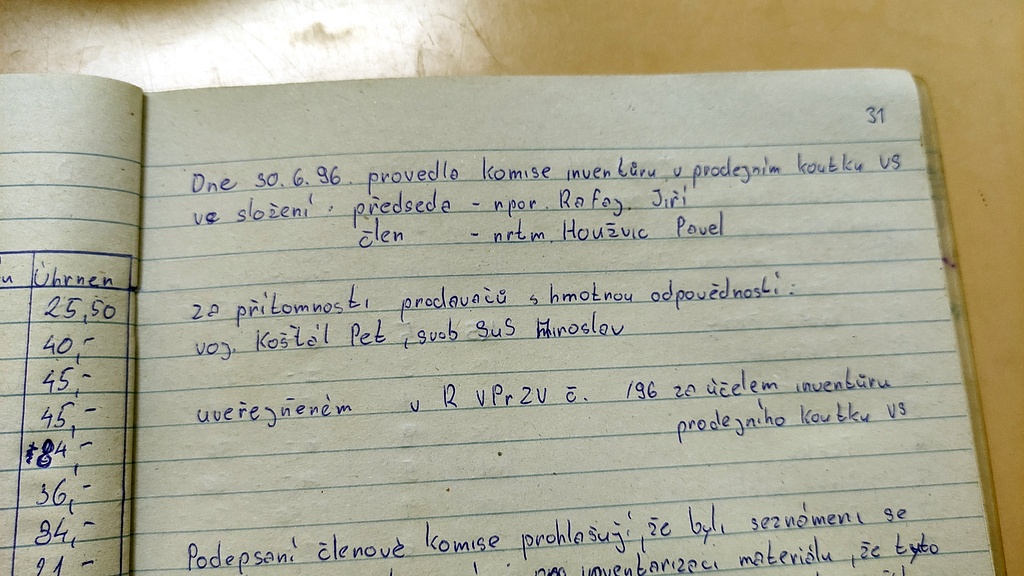 31
Dne 30.6.96. provedla komise inventůru v prodejním koutku VS
ve složení: předseda - npor. Rafaj. Jiří
člen - nrtm. Houžvic Pavel
za přítomnosti prodavačů s hmotnou odpovědností:
voj. Koštěl Pet, svob SuS Miroslav
uveřejněném v R VPrZV č. 196 za účelem inventůru
prodejního koutku VS
Podepsaní členové komise prohlašují, že byli seznámeni se
inventarizaci materiálu, že tyto
u Úhrnem
25,50
40,-
45,-
45,-
84,-
36,-
34,-
21,-